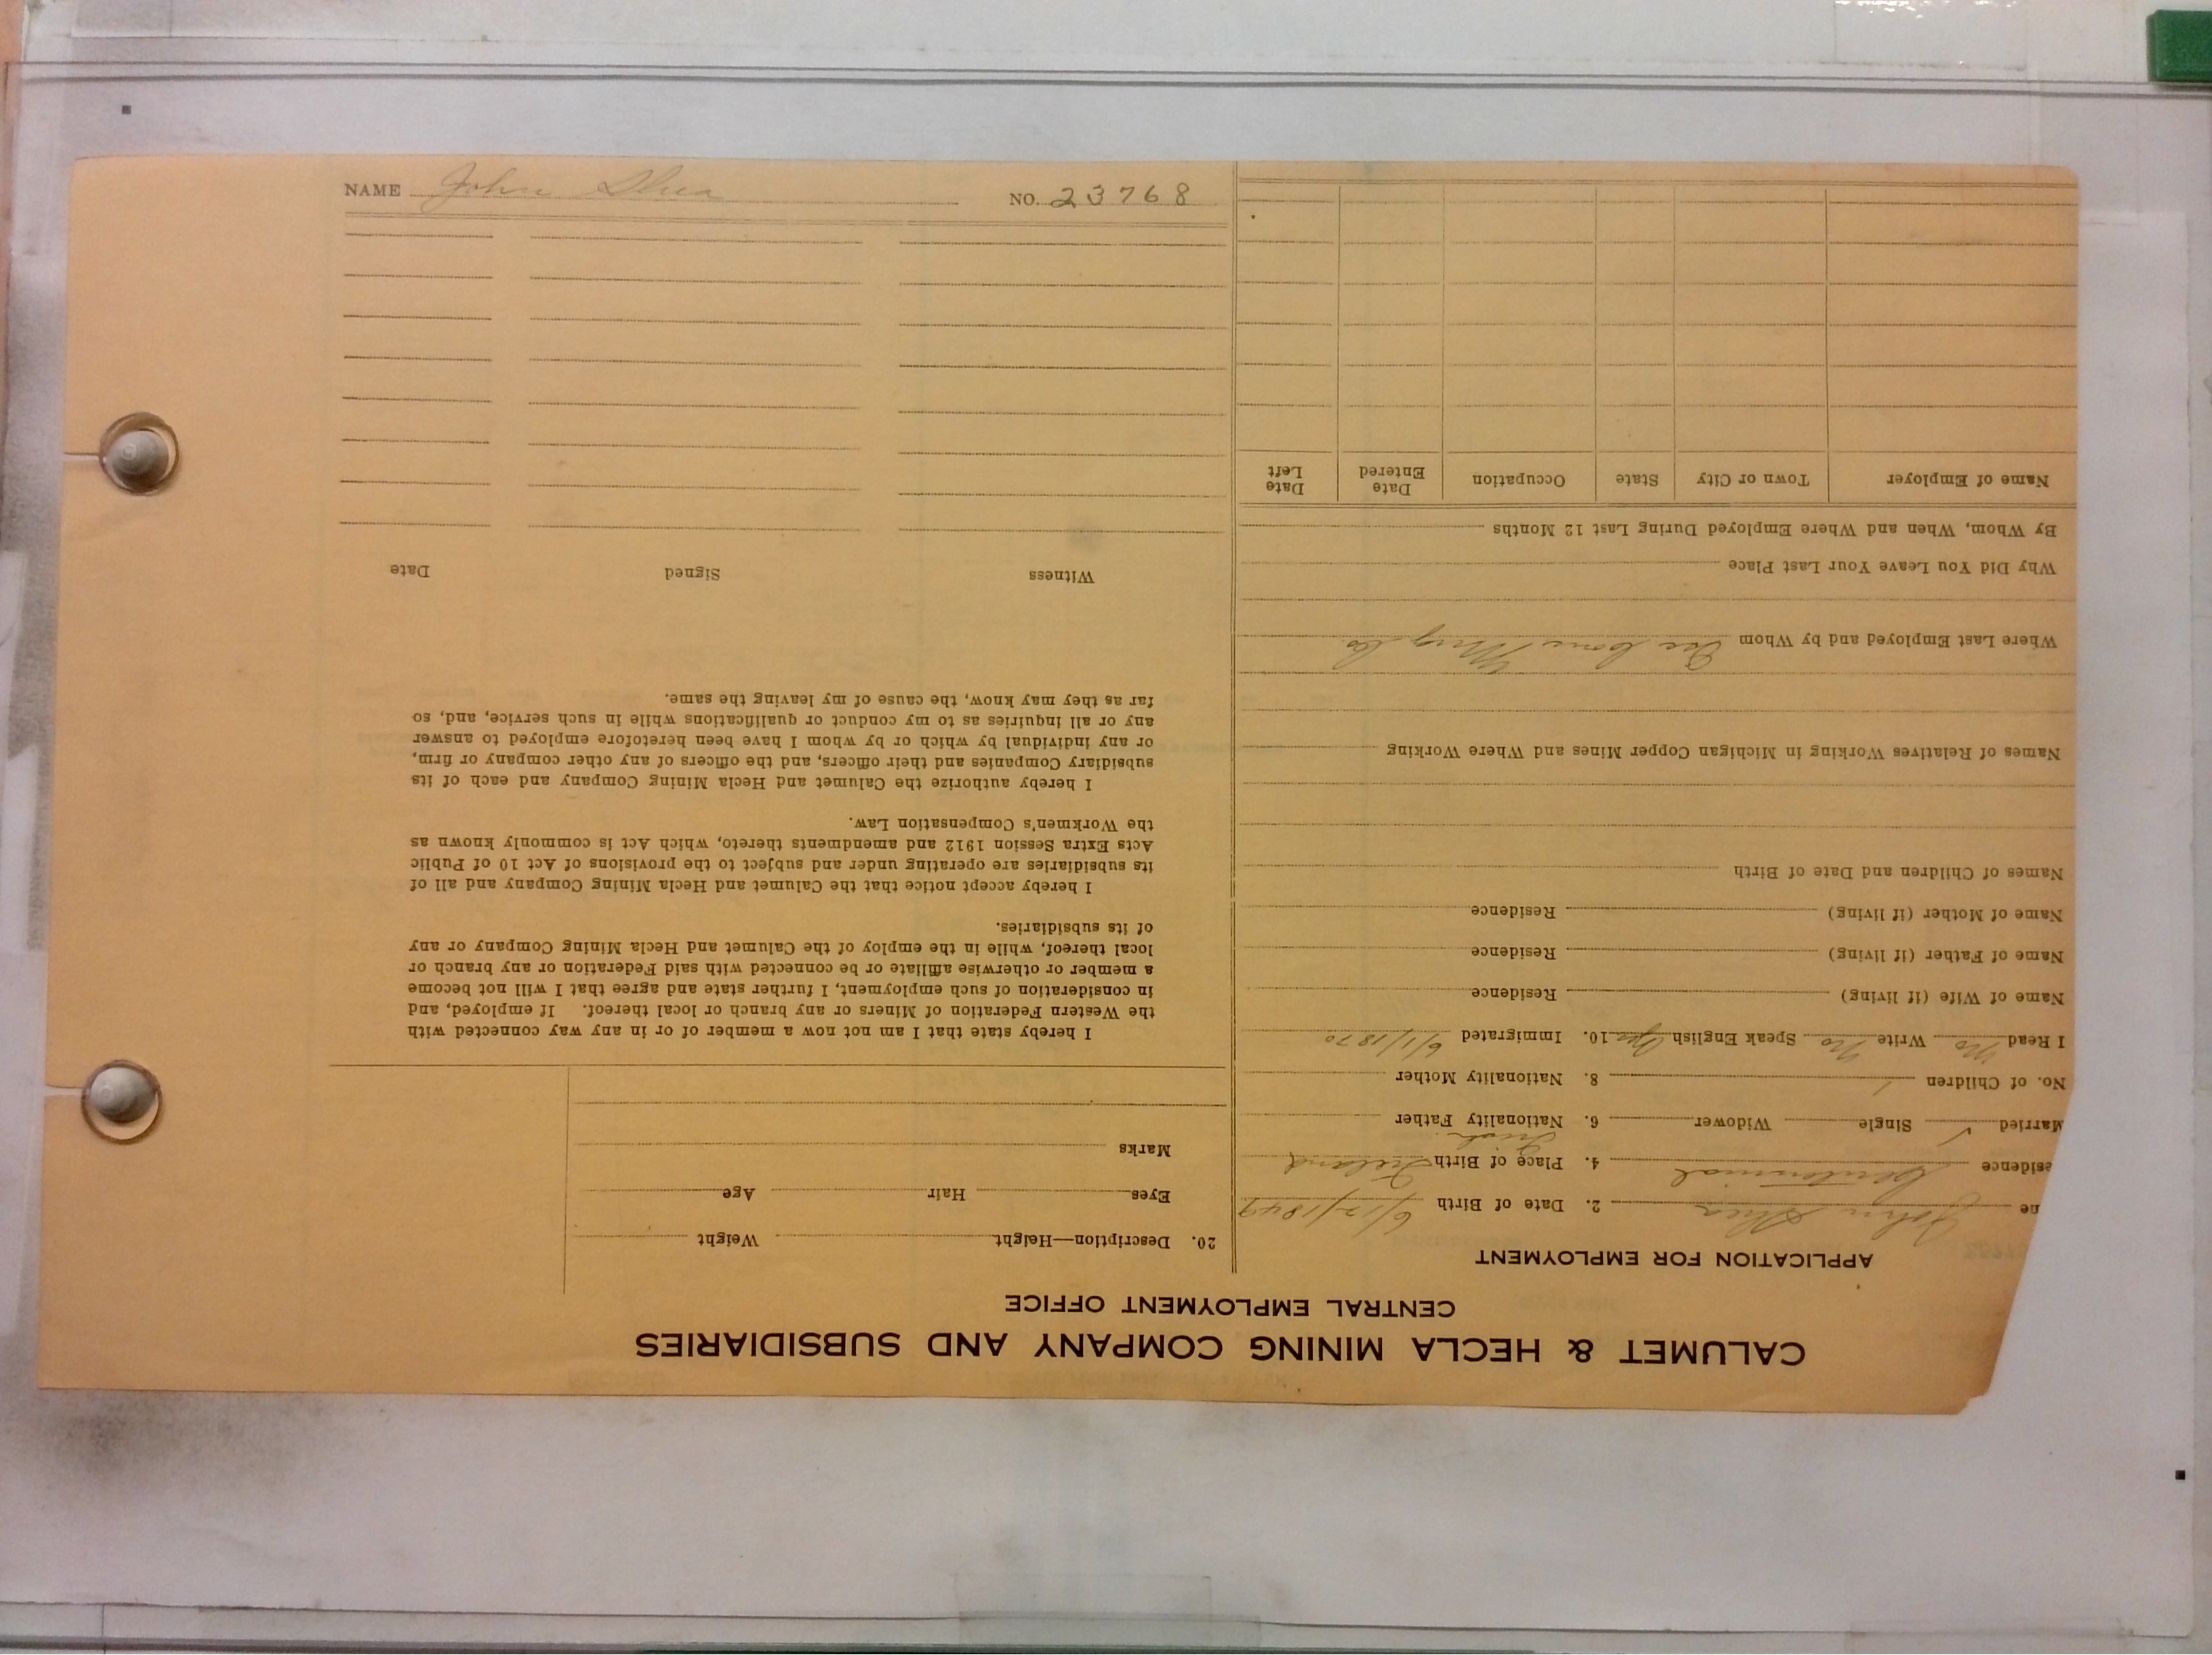 CALUMET & HECLA MINING COMPANY AND SUBSIDIARIES
CENTRAL EMPLOYMENT OFFICE
APPLICATION FOR EMPLOYMENT
me John Shea 2. Date of Birth 6/12/1849
esidence Centennial 4. Place of Birth Ireland
Married ✓ Single Widower 6. Nationality Father Irish
No. of Children 8. Nationality Mother
I Read No Write No Speak English Yes 10. Immigrated 6/1/1870
Name of Wife (if living) Residence
Name of Father (if living) Residence
Name of Mother (if living) Residence
Names of Children and Date of Birth
Names of Relatives Working in Michigan Copper Mines and Where Working
Where Last Employed and by Whom Cons Mng Co
Why Did You Leave Your Last Place
By Whom, When and Where Employed During Last 12 Months
Name of Employer Town or City State Occupation Date Entered Date Left
20. Description—Height Weight
Eyes Hair Age
Marks
I hereby state that I am not now a member of or in any way connected with
the Western Federation of Miners or any branch or local thereof. If employed, and
in consideration of such employment, I further state and agree that I will not become
a member or otherwise affiliate or be connected with said Federation or any branch or
local thereof, while in the employ of the Calumet and Hecla Mining Company or any
of its subsidiaries.
I hereby accept notice that the Calumet and Hecla Mining Company and all of
its subsidiaries are operating under and subject to the provisions of Act 10 of Public
Acts Extra Session 1912 and amendments thereto, which Act is commonly known as
the Workmen's Compensation Law.
I hereby authorize the Calumet and Hecla Mining Company and each of its
subsidiary Companies and their officers, and the officers of any other company or firm,
or any individual by which or by whom I have been heretofore employed to answer
any or all inquiries as to my conduct or qualifications while in such service, and, so
far as they may know, the cause of my leaving the same.
Witness Signed Date
NAME John Shea NO. 23768